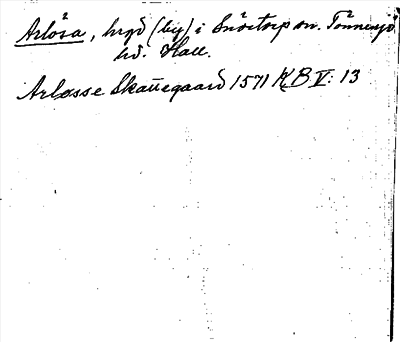 Arlösa, hrgd (by) i Snöstorp sn. Tönnersjö
hd. Hall.
Arløsse Skattegaard 1571 KB V: 13